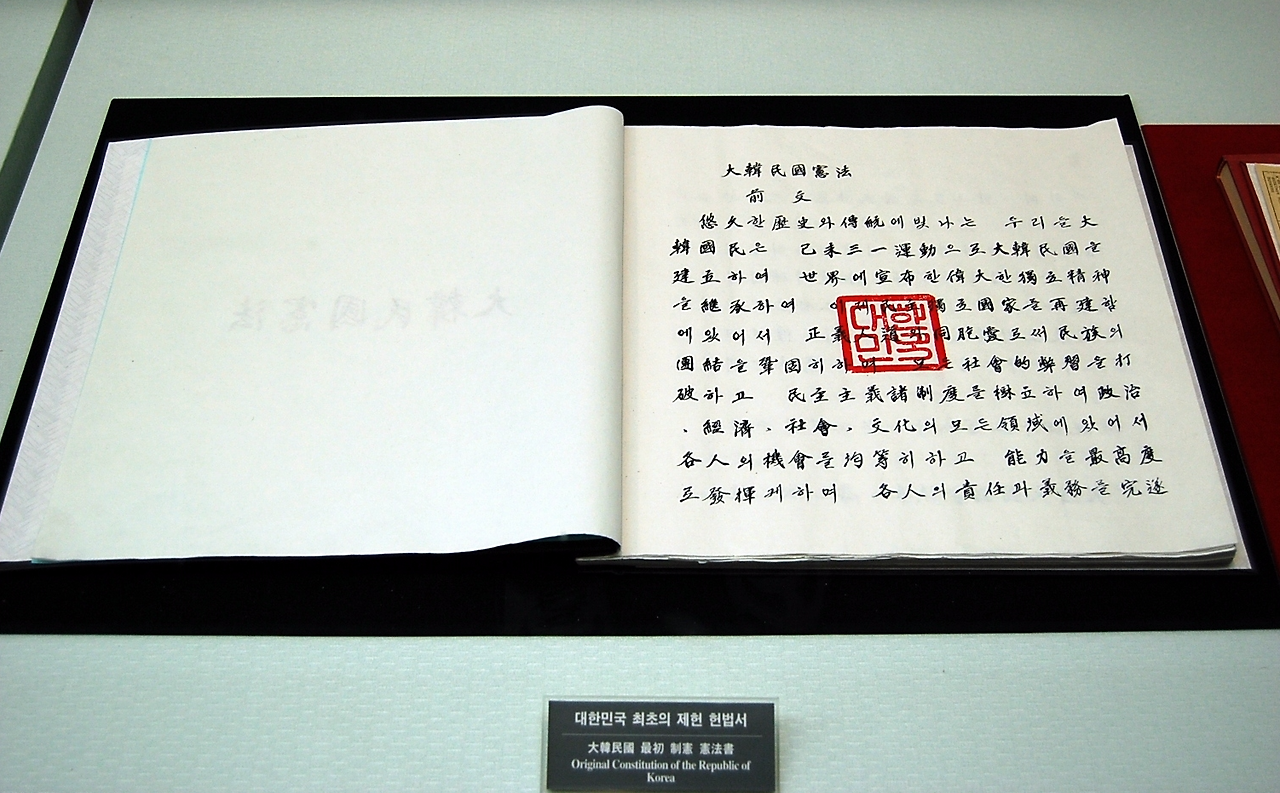 大韓民國憲法
前 文
悠久한歷史와傳統에빛나는 우리들大
韓國民은 己未三一運動으로大韓民國을
建立하여 世界에宣布한偉大한獨立精神
을繼承하여 이제民主獨立國家를再建함
에있어서 正義人道와同胞愛로써民族의
團結을鞏固히하며 모든社會的弊習을打
破하고 民主主義諸制度를樹立하여政治
、經濟、社會、文化의모든領域에있어서
各人의機會를均等히하고 能力을最高度
로發揮케하며 各人의責任과義務를完遂
대한민국
대한민국 최초의 제헌 헌법서
大韓民國 最初 制憲 憲法書
Original Constitution of the Republic of
Korea